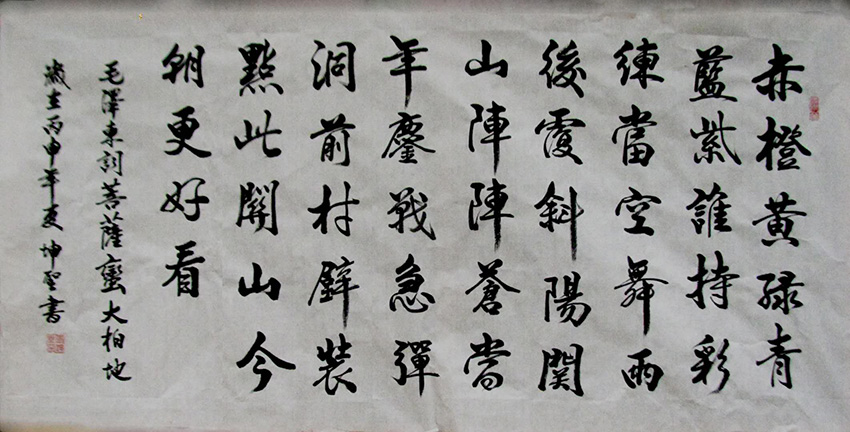 赤橙黄緑青
藍紫誰持彩
練當空舞雨
後覆斜陽関
山陣陣蒼當
年鏖戰急彈
洞前村壁裝
點此關山今
朝更好看
毛澤東詞菩薩蠻大柏地
歲在丙申年夏坤聖書